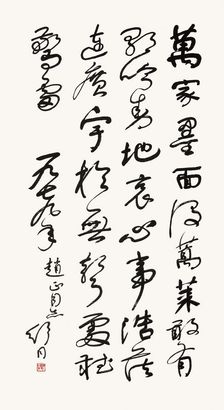 萬家墨面没蒿萊敢有
歌吟動地哀心事浩茫
連廣宇於無聲處聽
驚雷
一九七九年
趙正同志
舒同